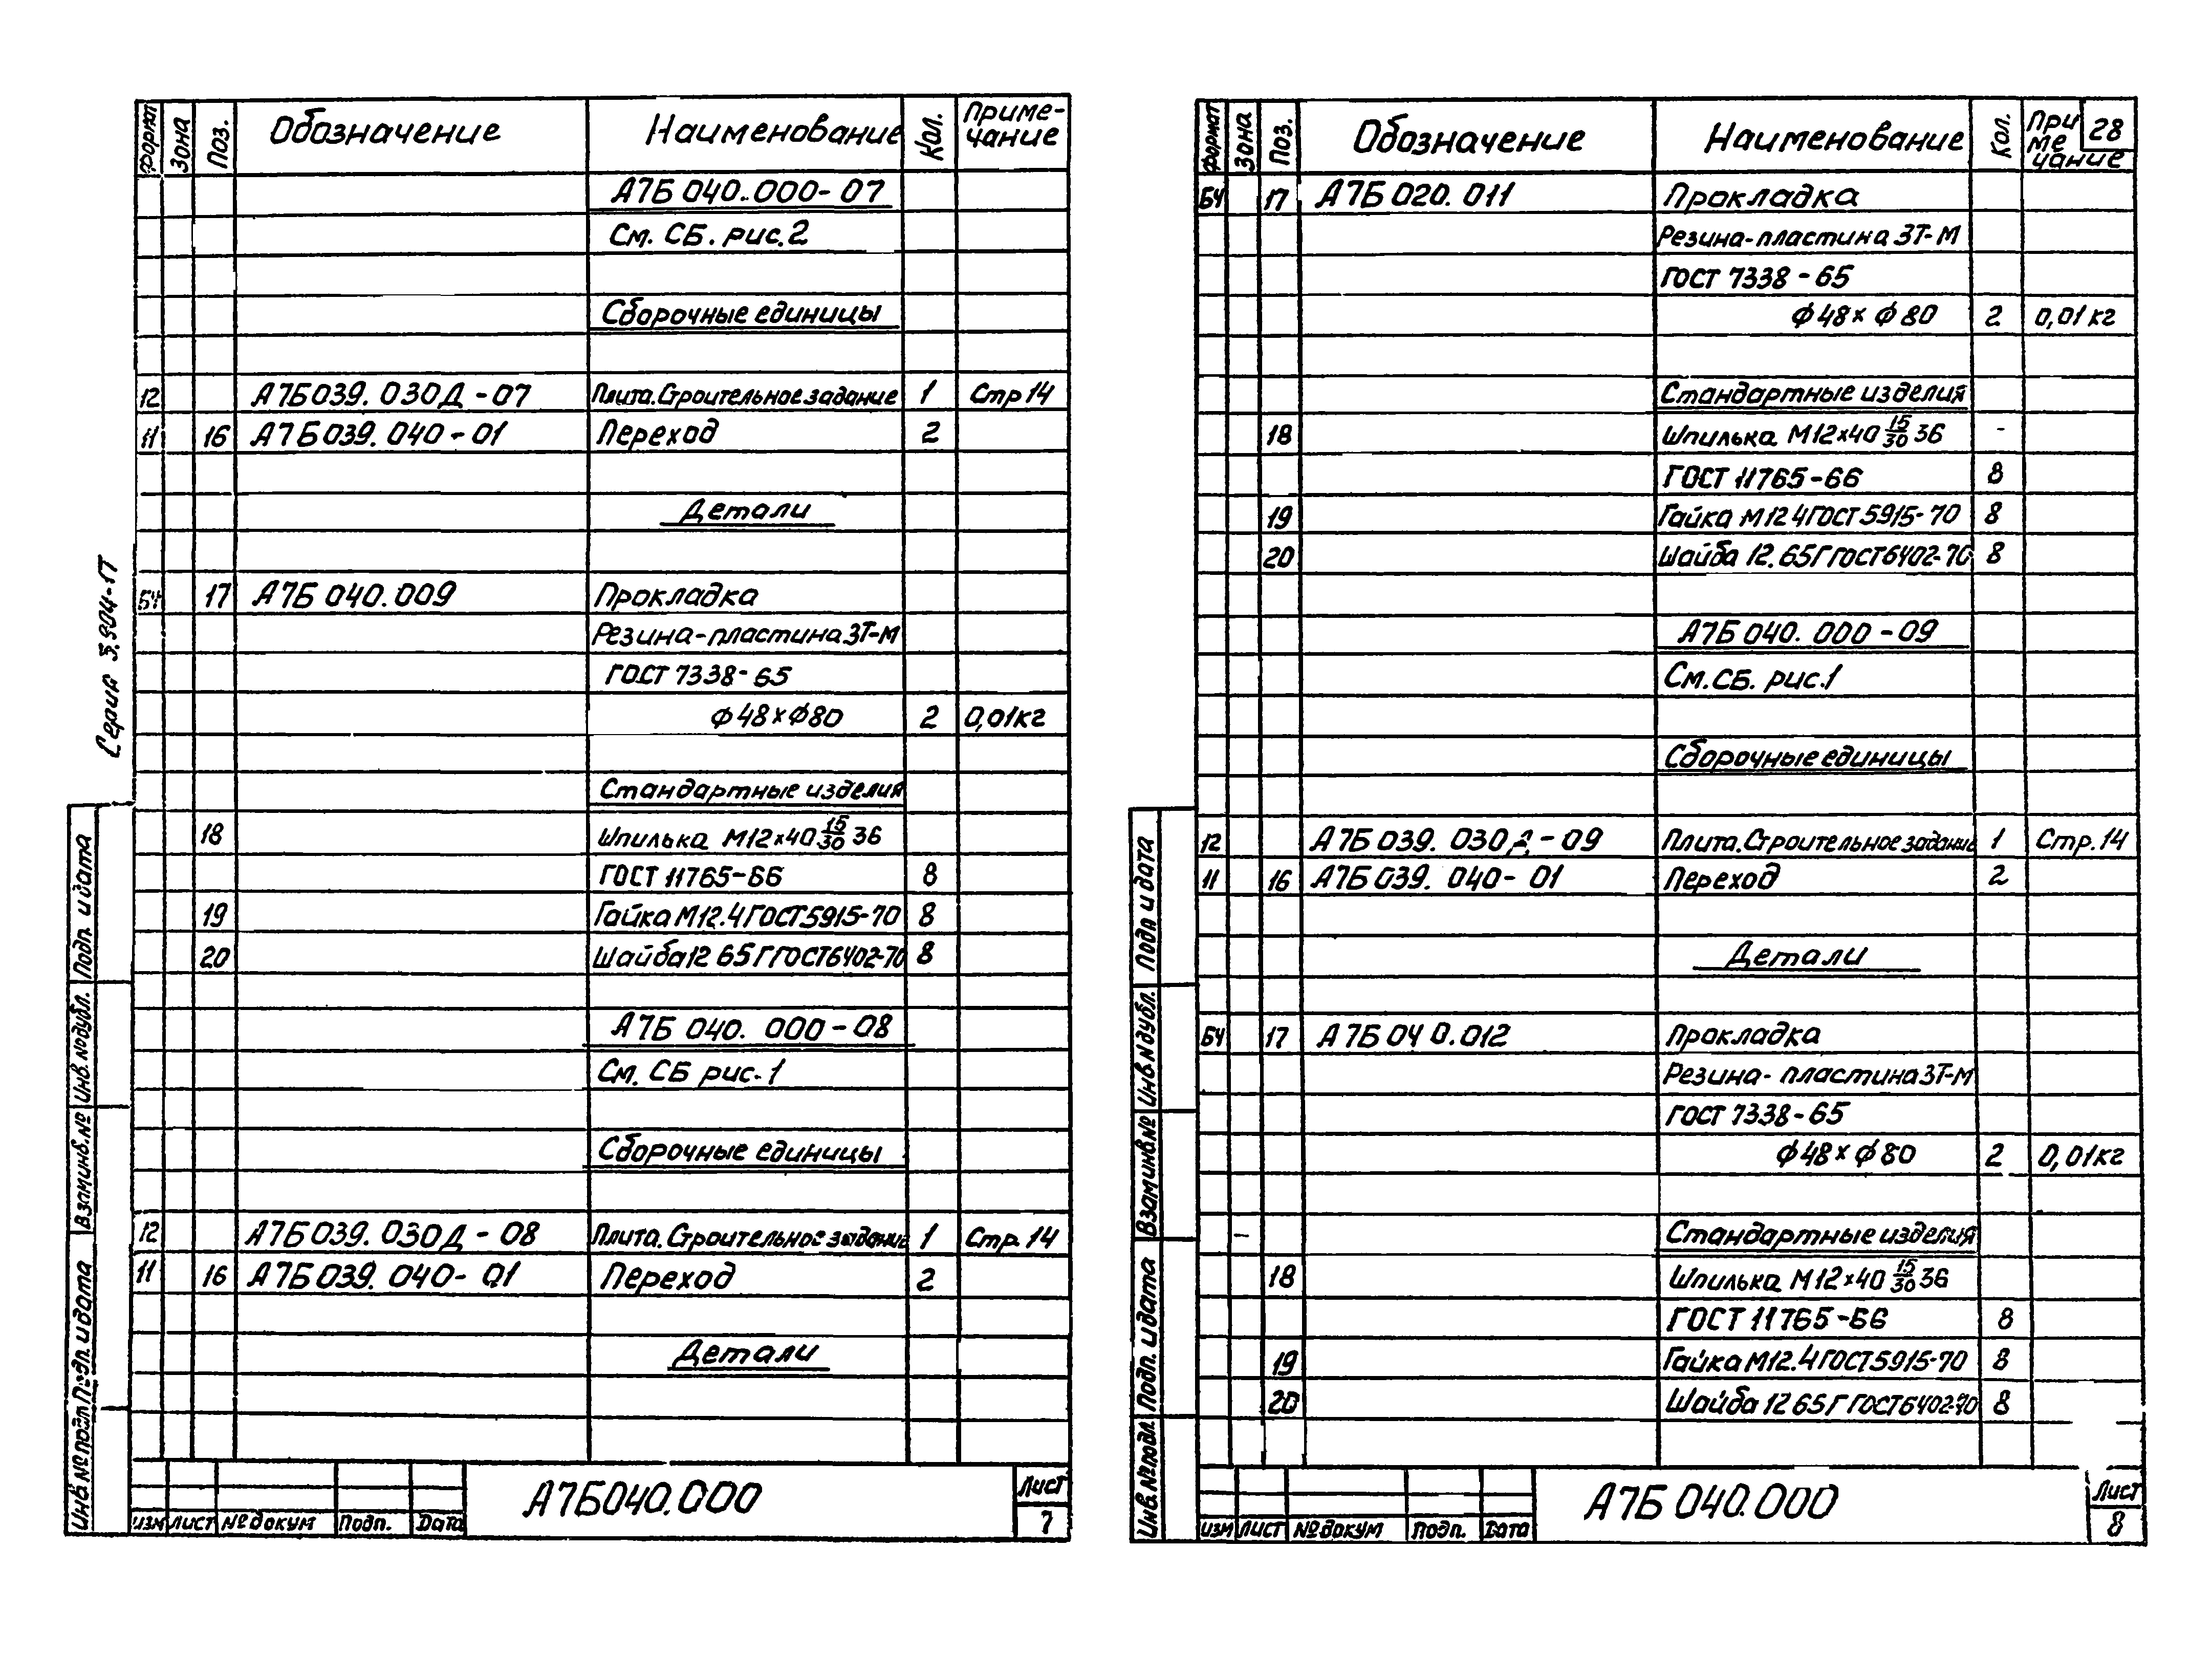 Формат Зона Поз. Обозначение Наименование Кол. Приме-
чание
А7Б 040.000-07
См. СБ. рис.2
Сборочные единицы
12 А7Б039.030Д-07 Плита.Строительное задание 1 Стр 14
11 16 А7Б039.040-01 Переход 2
Детали
БЧ 17 А7Б 040.009 Прокладка
Резина-пластина 3Т-М
ГОСТ 7338-65
ф48×ф80 2 0,01кг
Стандартные изделия
18 Шпилька М12×40 15/30 36
ГОСТ 11765-66 8
19 Гайка М12.4 ГОСТ 5915-70 8
20 Шайба 12 65Г ГОСТ 6402-70 8
А7Б 040.000-08
См. СБ рис.1
Сборочные единицы
12 А7Б039.030Д-08 Плита.Строительное задание 1 Стр.14
11 16 А7Б039.040-01 Переход 2
Детали
Серия 5.904-17
Подп. и дата
Инв.№дубл.
Взам.инв.№
Подп. и дата
Инв.№ подл
изм лист № докум Подп. Дата
А7Б040.000
Лист
7
Формат Зона Поз. Обозначение Наименование Кол. При
ме
чание
28
БЧ 17 А7Б 020.011 Прокладка
Резина-пластина 3Т-М
ГОСТ 7338-65
ф48×ф80 2 0,01кг
Стандартные изделия
18 Шпилька М12×40 15/30 36 -
ГОСТ 11765-66 8
19 Гайка М12 4 ГОСТ 5915-70 8
20 Шайба 12.65Г ГОСТ 6402-70 8
А7Б 040.000-09
См.СБ. рис.1
Сборочные единицы
12 А7Б 039.030Д-09 Плита.Строительное задание 1 Стр.14
11 16 А7Б 039.040-01 Переход 2
Детали
БЧ 17 А7Б 040.012 Прокладка
Резина-пластина 3Т-М
ГОСТ 7338-65
ф48×ф80 2 0,01кг
Стандартные изделия
18 Шпилька М12×40 15/30 36
ГОСТ 11765-66 8
19 Гайка М12.4 ГОСТ 5915-70 8
20 Шайба 12 65Г ГОСТ 6402-70 8
Подп и дата
Инв.№дубл.
Взам.инв.№
Подп. и дата
Инв.№ подл.
изм лист № докум Подп. Дата
А7Б 040.000
Лист
8